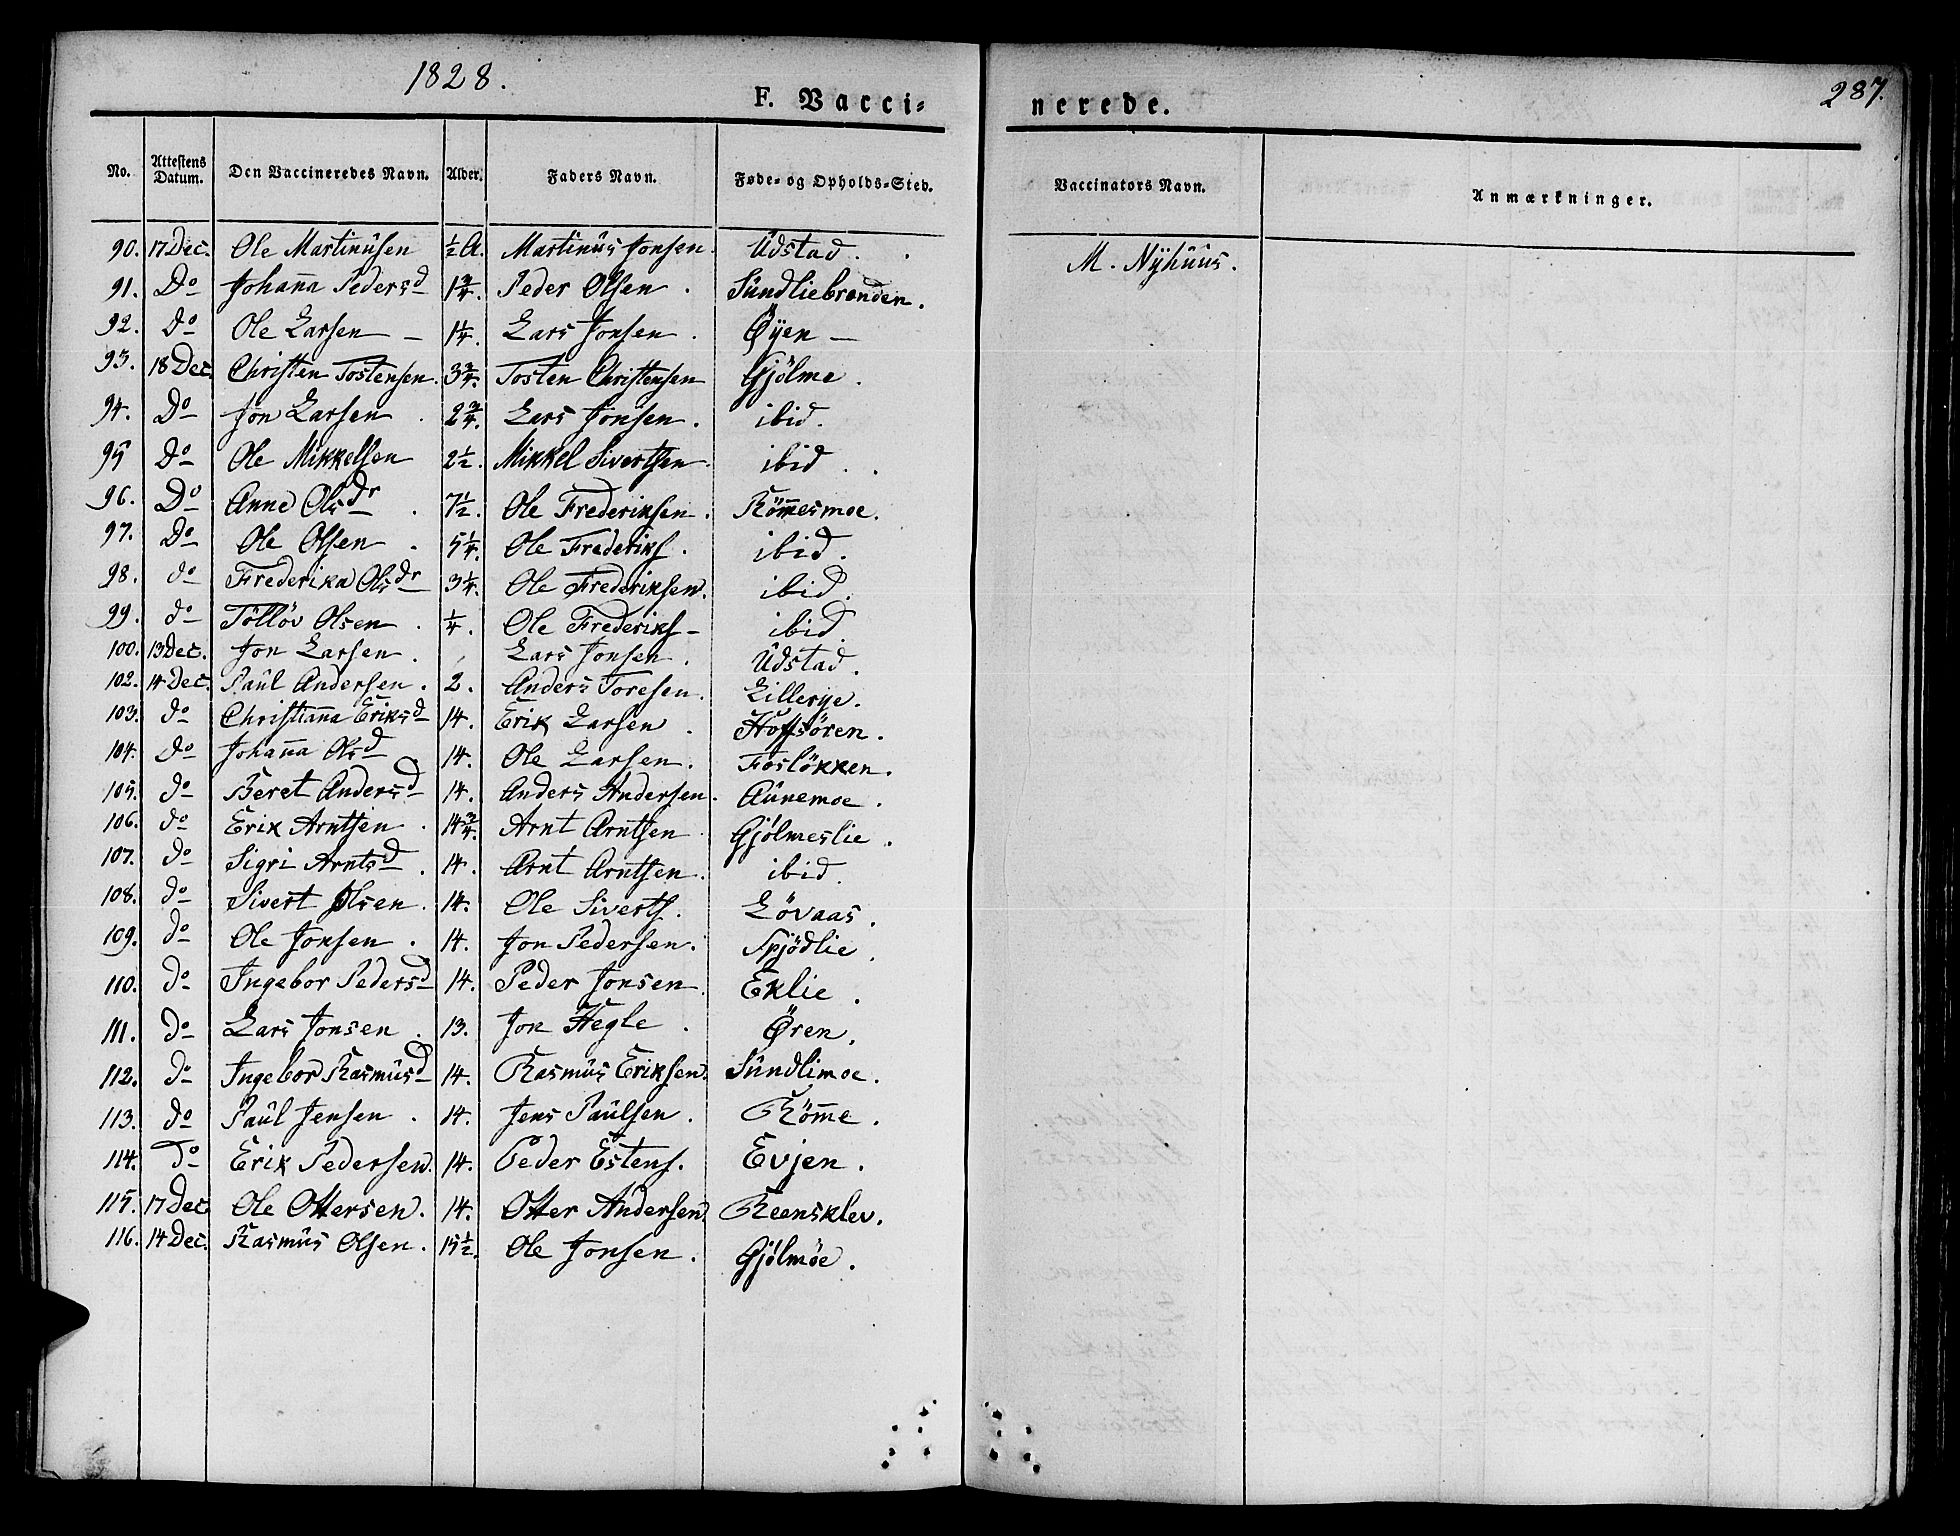 1828.
287.
F. Vacci-
nerede.
No. | Attestens Datum. | Den Vaccineredes Navn. | Alder. | Faders Navn. | Føde- og Opholds-Sted. | Vaccinators Navn. | Anmærkninger.
90. | 17 Dec. | Ole Martinusen | ½ A. | Martinus Jonsen. | Udstad. | M. Nyhuus.
91. | Do | Johanna Pedersd | 1¾. | Peder Olsen. | Sundliebrønden.
92. | do | Ole Larsen | 1¼. | Lars Jonsen. | Öyen
93. | 18 Dec. | Christen Tostensen. | 3¾. | Tosten Christensen | Gjölme.
94. | Do | Jon Larsen. | 2¾. | Lars Jonsen. | ibid.
95 | Do | Ole Mikkelsen | 2½. | Mikkel Sivertsen. | ibid.
96. | Do | Anne Olsdr. | 7½. | Ole Frederiksen. | Römmesmoe.
97. | Do | Ole Olsen. | 5¼. | Ole Frederiks. | ibid.
98. | do | Frederika Olsdr | 3¼. | Ole Frederiksen. | ibid.
99. | do | Töllöv Olsen. | ¼. | Ole Frederiks | ibid.
100. | 13 Dec. | Jon Larsen. | Lars Jonsen. | Udstad.
102. | 14 Dec. | Paul Andersen. | 2. | Anders Toresen. | Lillerye.
103. | do | Christianna Eriksd | 14. | Erik Larsen. | Hoffsören.
104. | do | Johanna Olsd | 14. | Ole Larsen. | Foslökken.
105. | do | Beret Andersd | 14. | Anders Andersen. | Aunemoe.
106. | do | Erik Arntsen. | 14¾. | Arnt Arntsen | Gjölmeslie.
107. | do | Sigri Arntsd. | 14. | Arnt Arntsen. | ibid.
108. | do | Sivert Olsen. | 14. | Ole Siverts. | Lövaas.
109. | do | Ole Jonsen. | 14. | Jon Pedersen. | Spjödlie.
110. | do | Ingebor Pedersd | 14. | Peder Jonsen. | Eklie.
111. | do | Lars Jonsen. | 13. | Jon Hegle. | Ören.
112. | do | Ingebor Rasmusd | 14. | Rasmus Eriksen. | Sundlimoe.
113. | do | Paul Jensen. | 14. | Jens Paulsen. | Römme.
114. | do | Erik Pedersen. | 14. | Peder Estens. | Evjen.
115. | 17 Dec. | Ole Ottersen. | 14. | Otter Andersen. | Reensklev.
116. | 14 Dec. | Rasmus Olsen. | 15½. | Ole Jonsen. | Gjölmöe.